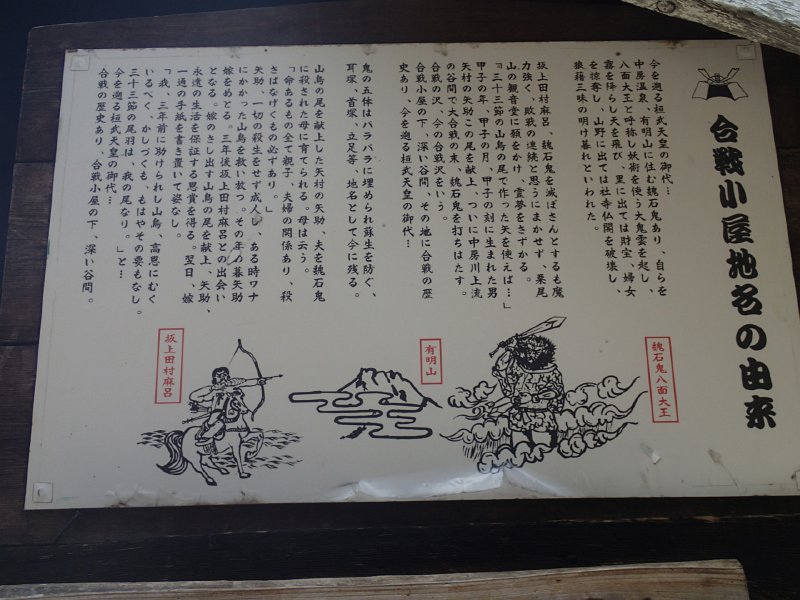 合戦小屋地名の由来
今を遡る桓武天皇の御代…
中房温泉、有明山に住む魏石鬼あり、自らを
八面大王と呼称し妖術を使う大鬼雲を起し、
霧を降らし天を飛び、里に出ては財宝、婦女
を掠奪し、山野に出ては社寺仏閣を破壊し、
狼籍三昧の明け暮れといわれた。
坂上田村麻呂、魏石鬼を滅ぼさんとするも魔
力強く、敗戦の連続と思うにまかせず、栗尾
山の観音堂に額をかけ、霊夢をさずかる。
『三十三節の山鳥の尾で作った矢を使えば…』
甲子の年、甲子の月、甲子の刻に生まれた男
矢村の矢助この尾を献上、ついに中房川上流
の谷間で大合戦の末、魏石鬼を打ちはたす。
合戦の沢、今の合戦沢をいう。
合戦小屋の下、深い谷間、その地に合戦の歴
史あり、今を遡る桓武天皇の御代…
鬼の五体はバラバラに埋められ蘇生を防ぐ、
耳塚、首塚、立足等、地名として今に残る。
山鳥の尾を献上した矢村の矢助、夫を魏石鬼
に殺された母に育てられる。母は云う。
「命あるもの全て親子、夫婦の関係あり、殺
さばなげくもの必ずあり。」
矢助、一切の殺生をせず成人し、ある時ワナ
にかかった山鳥を救い放つ。その年の暮矢助
嫁をめとる。三年後坂上田村麻呂との出会い
となる。嫁のさし出す山鳥の尾を献上、矢助、
永遠の生活を保証する恩賞を得る。翌日、嫁
一通の手紙を書き置いて姿なし。
「我、三年前に助けられし山鳥、高恩にむく
いるべく、かしづくも、もはやその要もなし。
三十三節の尾羽は、我の尾なり。」と…
今を遡る桓武天皇の御代…
合戦の歴史あり、合戦小屋の下、深い谷間。
魏石鬼八面大王
有明山
坂上田村麻呂